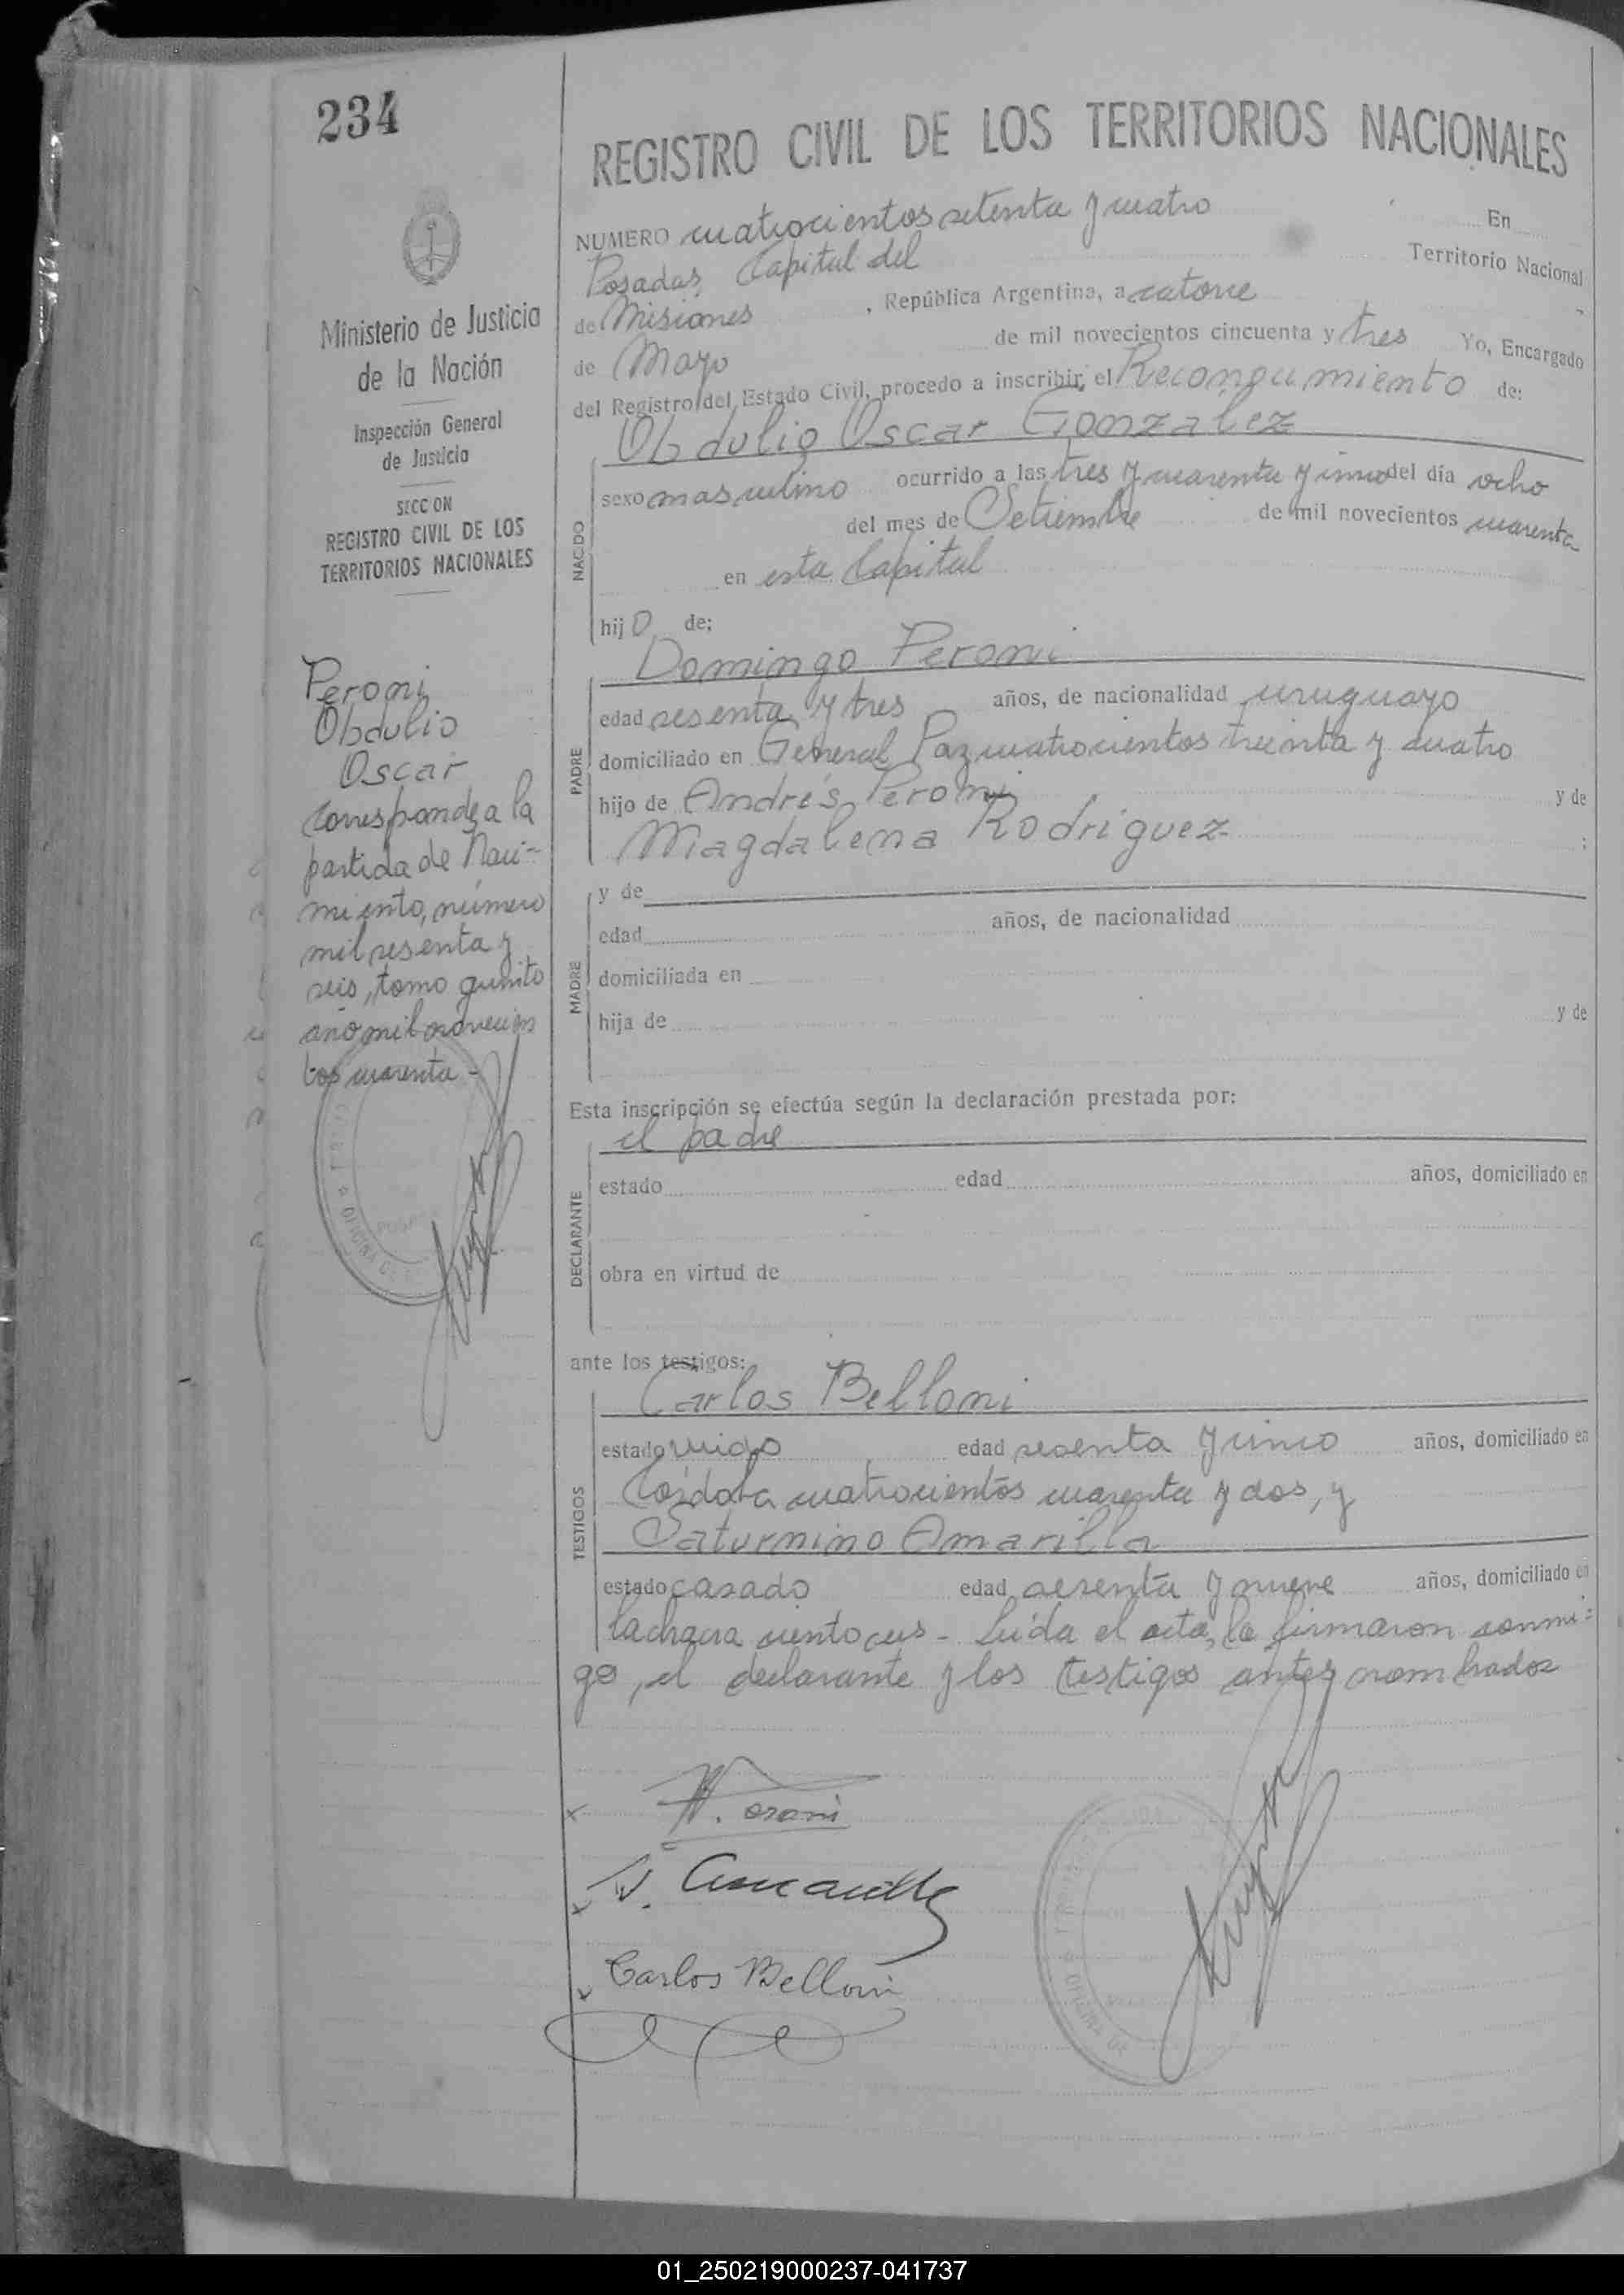 234
REGISTRO CIVIL DE LOS TERRITORIOS NACIONALES
NUMERO cuatrocientos setenta y cuatro En
Posadas, Capital del Territorio Nacional
de Misiones, República Argentina, a catorce
de Mayo de mil novecientos cincuenta y tres Yo, Encargado
del Registro del Estado Civil, procedo a inscribir el Reconocimiento de:
Obdulio Oscar Gonzalez
NACIDO
sexo masculino ocurrido a las tres y cuarenta y cinco del día ocho
del mes de Setiembre de mil novecientos cuarenta
en esta Capital
hijo de:
Domingo Peroni
PADRE
edad sesenta y tres años, de nacionalidad uruguayo
domiciliado en General Paz cuatrocientos treinta y cuatro
hijo de Andrés Peroni y de
Magdalena Rodriguez ;
MADRE
y de
edad años, de nacionalidad
domiciliada en
hija de y de
Esta inscripción se efectúa según la declaración prestada por:
el padre
DECLARANTE
estado edad años, domiciliado en
obra en virtud de
ante los testigos:
Carlos Belloni
TESTIGOS
estado viudo edad sesenta y cinco años, domiciliado en
Córdoba cuatrocientos cuarenta y dos, y
Saturnino Amarilla
estado casado edad sesenta y nueve años, domiciliado en
la chacra ciento seis - Leída el acta, la firmaron conmi-
go, el declarante y los testigos antes nombrados
S. Amarilla
Carlos Belloni
Ministerio de Justicia
de la Nación
Inspección General
de Justicia
SECCION
REGISTRO CIVIL DE LOS
TERRITORIOS NACIONALES
Peroni
Obdulio
Oscar
Corresponde a la
partida de Naci-
miento, número
mil sesenta y
seis, tomo quinto
año mil novecien
tos cuarenta -
OFICINA
01_250219000237-041737